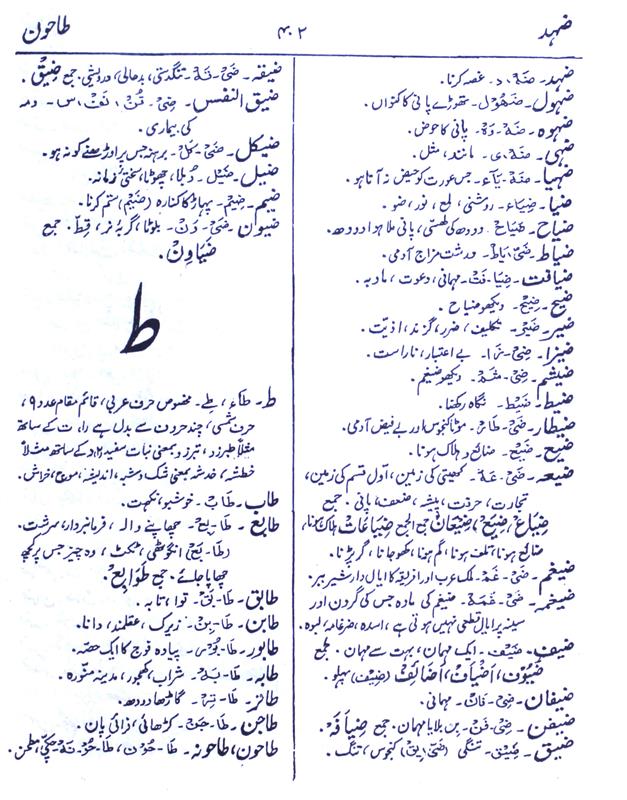 ضہد
۴۰۲
طاحون
ضہد۔ ضَہْ۔ د۔ غصہ کرنا۔
ضہول۔ ضَہُوْل۔ تھوڑے پانی کا کنواں۔
ضہوہ۔ ضَہْ۔ وَہْ۔ پانی کا حوض۔
ضہی۔ ضَہْ۔ ی۔ مانند، مثل۔
ضہیا۔ ضَہْ۔ یَآء۔ جس عورت کو حیض نہ آتا ہو۔
ضیا۔ ضِیَاء۔ روشنی، لمع، نور، ضو۔
ضیاح۔ ضَیَاح۔ دودھ کی لسّی، پانی ملا ہوا دودھ۔
ضیاط۔ ضَیْ۔ یَاط۔ درشت مزاج آدمی۔
ضیافت۔ ضِیَا۔ فَتْ۔ مہمانی، دعوت، مادبہ۔
ضیح۔ ضِیْح۔ دیکھو ضیاح۔
ضیر۔ ضَیْر۔ تکلیف، ضرر، گزند، اذیّت۔
ضیزا۔ ضِیْ۔ زا۔ بے اعتبار، ناراست۔
ضیشم۔ ضَیْ۔ شَمْ۔ دیکھو ضیغم۔
ضیط۔ ضَیْط۔ نگاہ رکھنا۔
ضیطار۔ ضَیْ۔ طَار۔ موٹا کنجوس اور بے فیض آدمی۔
ضیع۔ ضَیْع۔ ضائع و ہلاک ہونا۔
ضیعہ۔ ضَیْ۔ عَہْ۔ کھیتی کی زمین، اوّل قسم کی زمین،
تجارت، حرفت، پیشہ، ضعف، پانی۔ جمع
ضِیَاع، ضِیَع، ضَیْعَات جمع الجمع ضِیَاعَات ہلاک ہونا،
ضائع ہونا، تلف ہونا، گم ہونا، کھو جانا، گر پڑنا۔
ضیغم۔ ضَیْ۔ غَمْ۔ ملک عرب اور افریقہ کا ایال دار شیر ببر۔
ضیغمہ۔ ضَیْ۔ غَمَہْ۔ ضیغم کی مادہ جس کی گردن اور
سینہ پر ایال قطعی نہیں ہوتی ہے، اسدہ، ضرغامہ، لبوہ۔
ضیف۔ ضَیْف۔ ایک مہمان، بہت سے مہمان۔ جمع
ضُیُوْف، اَضْیَاف، اَضَائِف (ضِیْف) پہلو۔
ضیفان۔ ضِیْ۔ فَان۔ مہمانی۔
ضیفن۔ ضَیْ۔ فَنْ۔ بِن بلایا مہمان۔ جمع ضِیَافَہ۔
ضیق۔ ضِیْق۔ تنگی (ضَیْ۔ یِق) کنجوس، تنگ۔
ضیقہ۔ ضَیْ۔ قَہْ۔ تنگدستی، بدحالی، درویشی۔ جمع ضِیَق۔
ضیق النفس۔ ضِیْ۔ قُنْ، نَفَس۔ دمہ
کی بیماری۔
ضیکل۔ ضَیْ۔ کَلْ۔ برہنہ جس پر اوڑھنے کو نہ ہو۔
ضیل۔ ضَیْل۔ دُبلا، چھوٹا، سختی زمانہ۔
ضیم۔ ضِیْم۔ پہاڑ کا کنارہ (ضَیْم) ستم کرنا۔
ضیون۔ ضَیْ۔ وَنْ۔ بلوٹا، گربہ نر، قِط۔ جمع
ضَیَاوِنْ۔
ط
ط۔ طاء، طے۔ مخصوص حرف عربی، قائم مقام عدد ۹،
حرف شمسی، چند حروف سے بدل ہے را، ت کے ساتھ
مثلاً طبرزد، تبرزد بمعنی نبات سفید، د کے ساتھ مثلاً
خطشہ، خدشہ بمعنی شک و شبہ، اندیشہ، موچ، خراش۔
طاب۔ طَابْ۔ خوشبو، نکہت۔
طابع۔ طَا۔ بِع۔ چھاپنے والا، فرمانبردار، سرشت۔
(طَا۔ بَع) انگوٹھی، ٹکٹ، وہ چیز جس پر کچھ
چھاپا جائے۔ جمع طَوَابِع۔
طابق۔ طَا۔ بَق۔ توا، تابہ۔
طابن۔ طَا۔ بِن۔ زیرک، عقلمند، دانا۔
طابور۔ طَا۔ بُوْر۔ پیادہ فوج کا ایک حصّہ۔
طابہ۔ طَا۔ بَہْ۔ شراب، کھجور، مدینہ منوّرہ۔
طاثر۔ طَا۔ ثِر۔ گاڑھا دودھ۔
طاجن۔ طَا۔ جَن۔ کڑھائی، فرائی پان۔
طاحون، طاحونہ۔ طَا۔ حُوْن، طَا۔ حُوْ۔ نَہْ۔ چکّی، مطحن۔